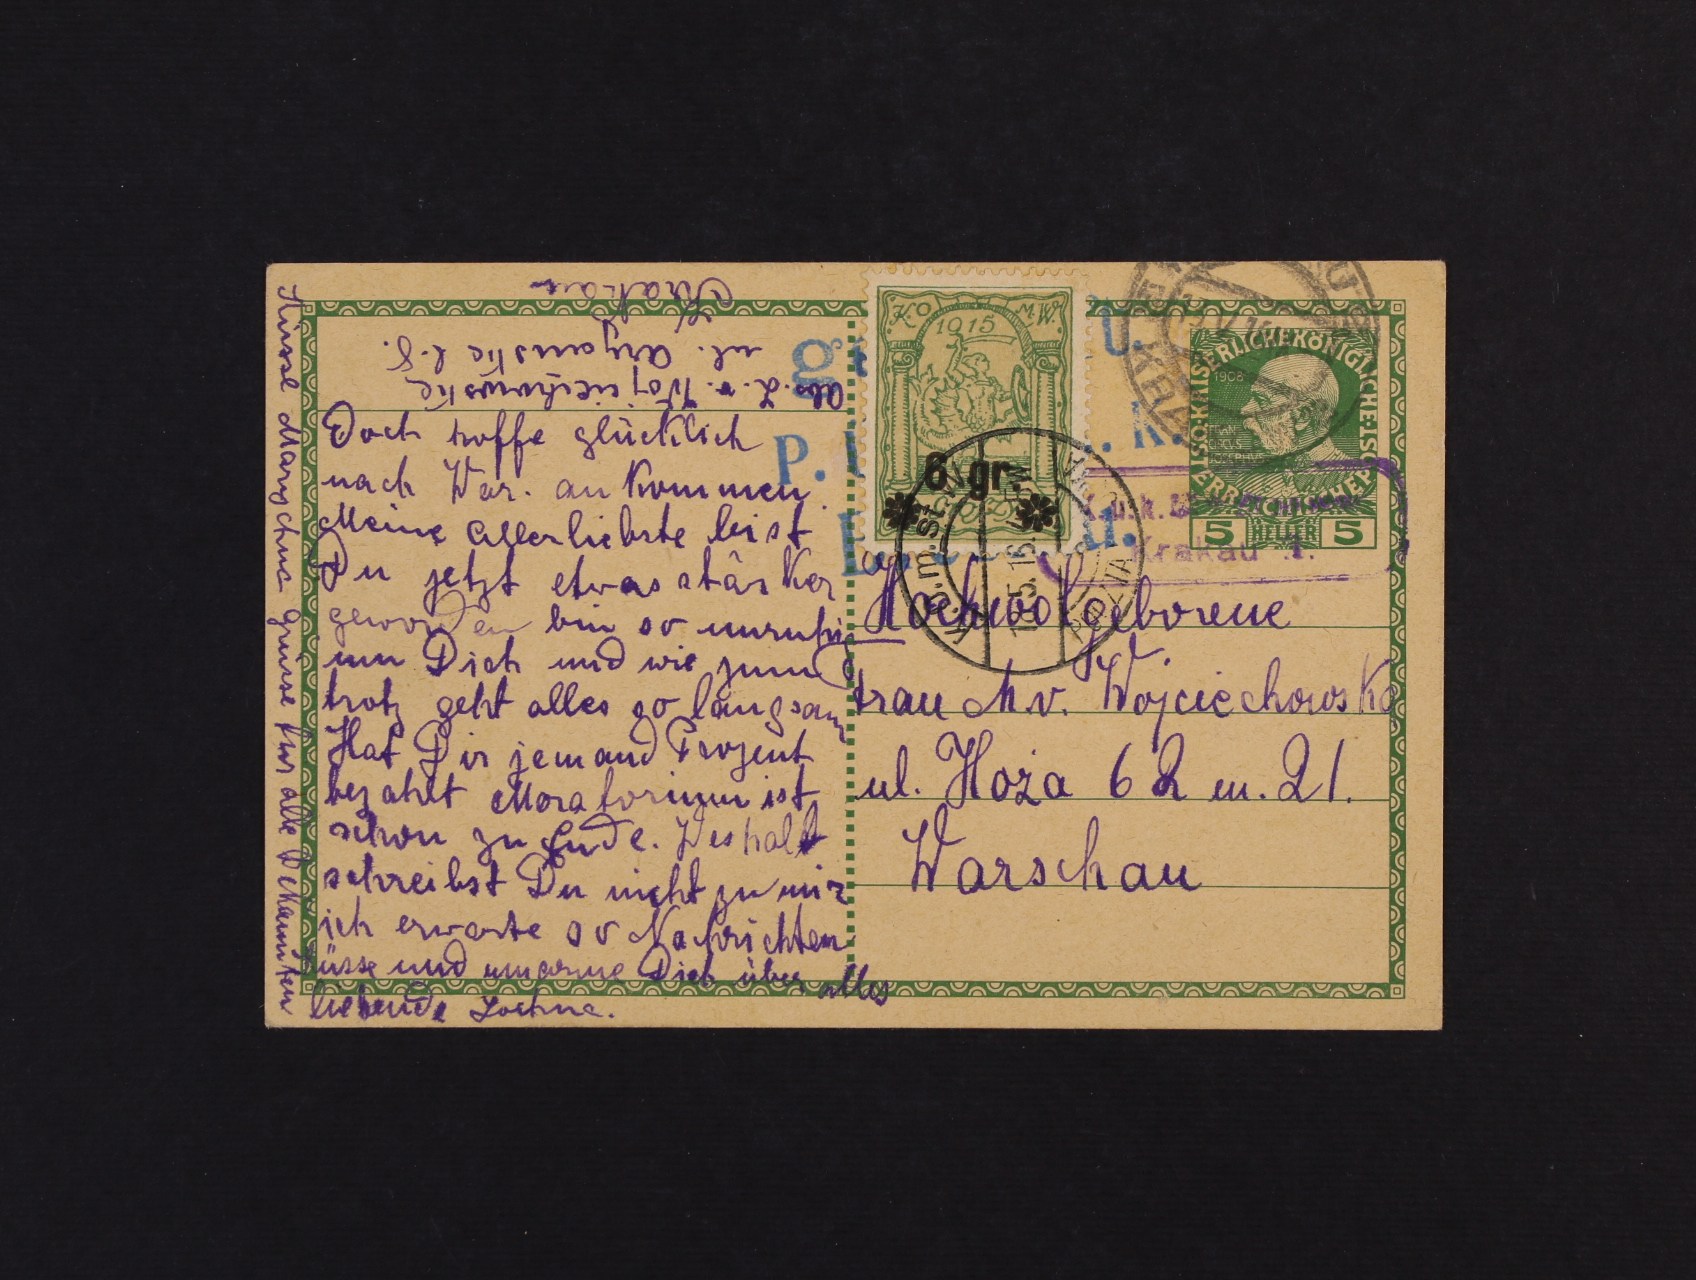 Krakau
ul. Aryanska l. 8.
Abs. L. v. Wojciechowska
Doch hoffe glücklich
nach War. an kommen
Meine Allerliebste bist
Du jetzt etwas stärker
geworden bin so unruhi
um Dich und wie zum
trotz geht alles so langsam
Hat Dir jemand Prozent
bezahlt Moratorium ist
schon zu Ende. Weshalb
schreibst Du nicht zu mir
ich erwarte so Nachrichten
Küsse und umarme Dich über alles
liebende
Küsse Marychna Grüsse für alle Bekannten
KO M.W.
1915
6 gr.
U.
P. K.
K.o.m. St. W
15.5.16.
KAISERLICHE KÖNIGLICHE ÖSTERREICHISCHE POST
1908
5 HELLER 5
Krakau 1.
Hochwolgeborene
W.
Frau M v. Wojciechowska
ul. Hoża 62 m. 21.
Warschau